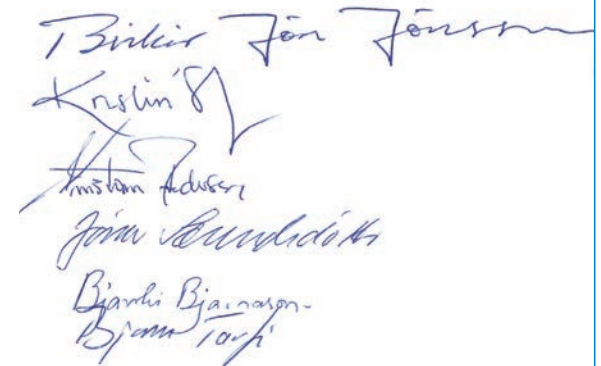 Birkir Jón Jónsson
Kristín
Kristian Pedersen
Jóna
Bjarki Bjarnason
Bjarni Torfi